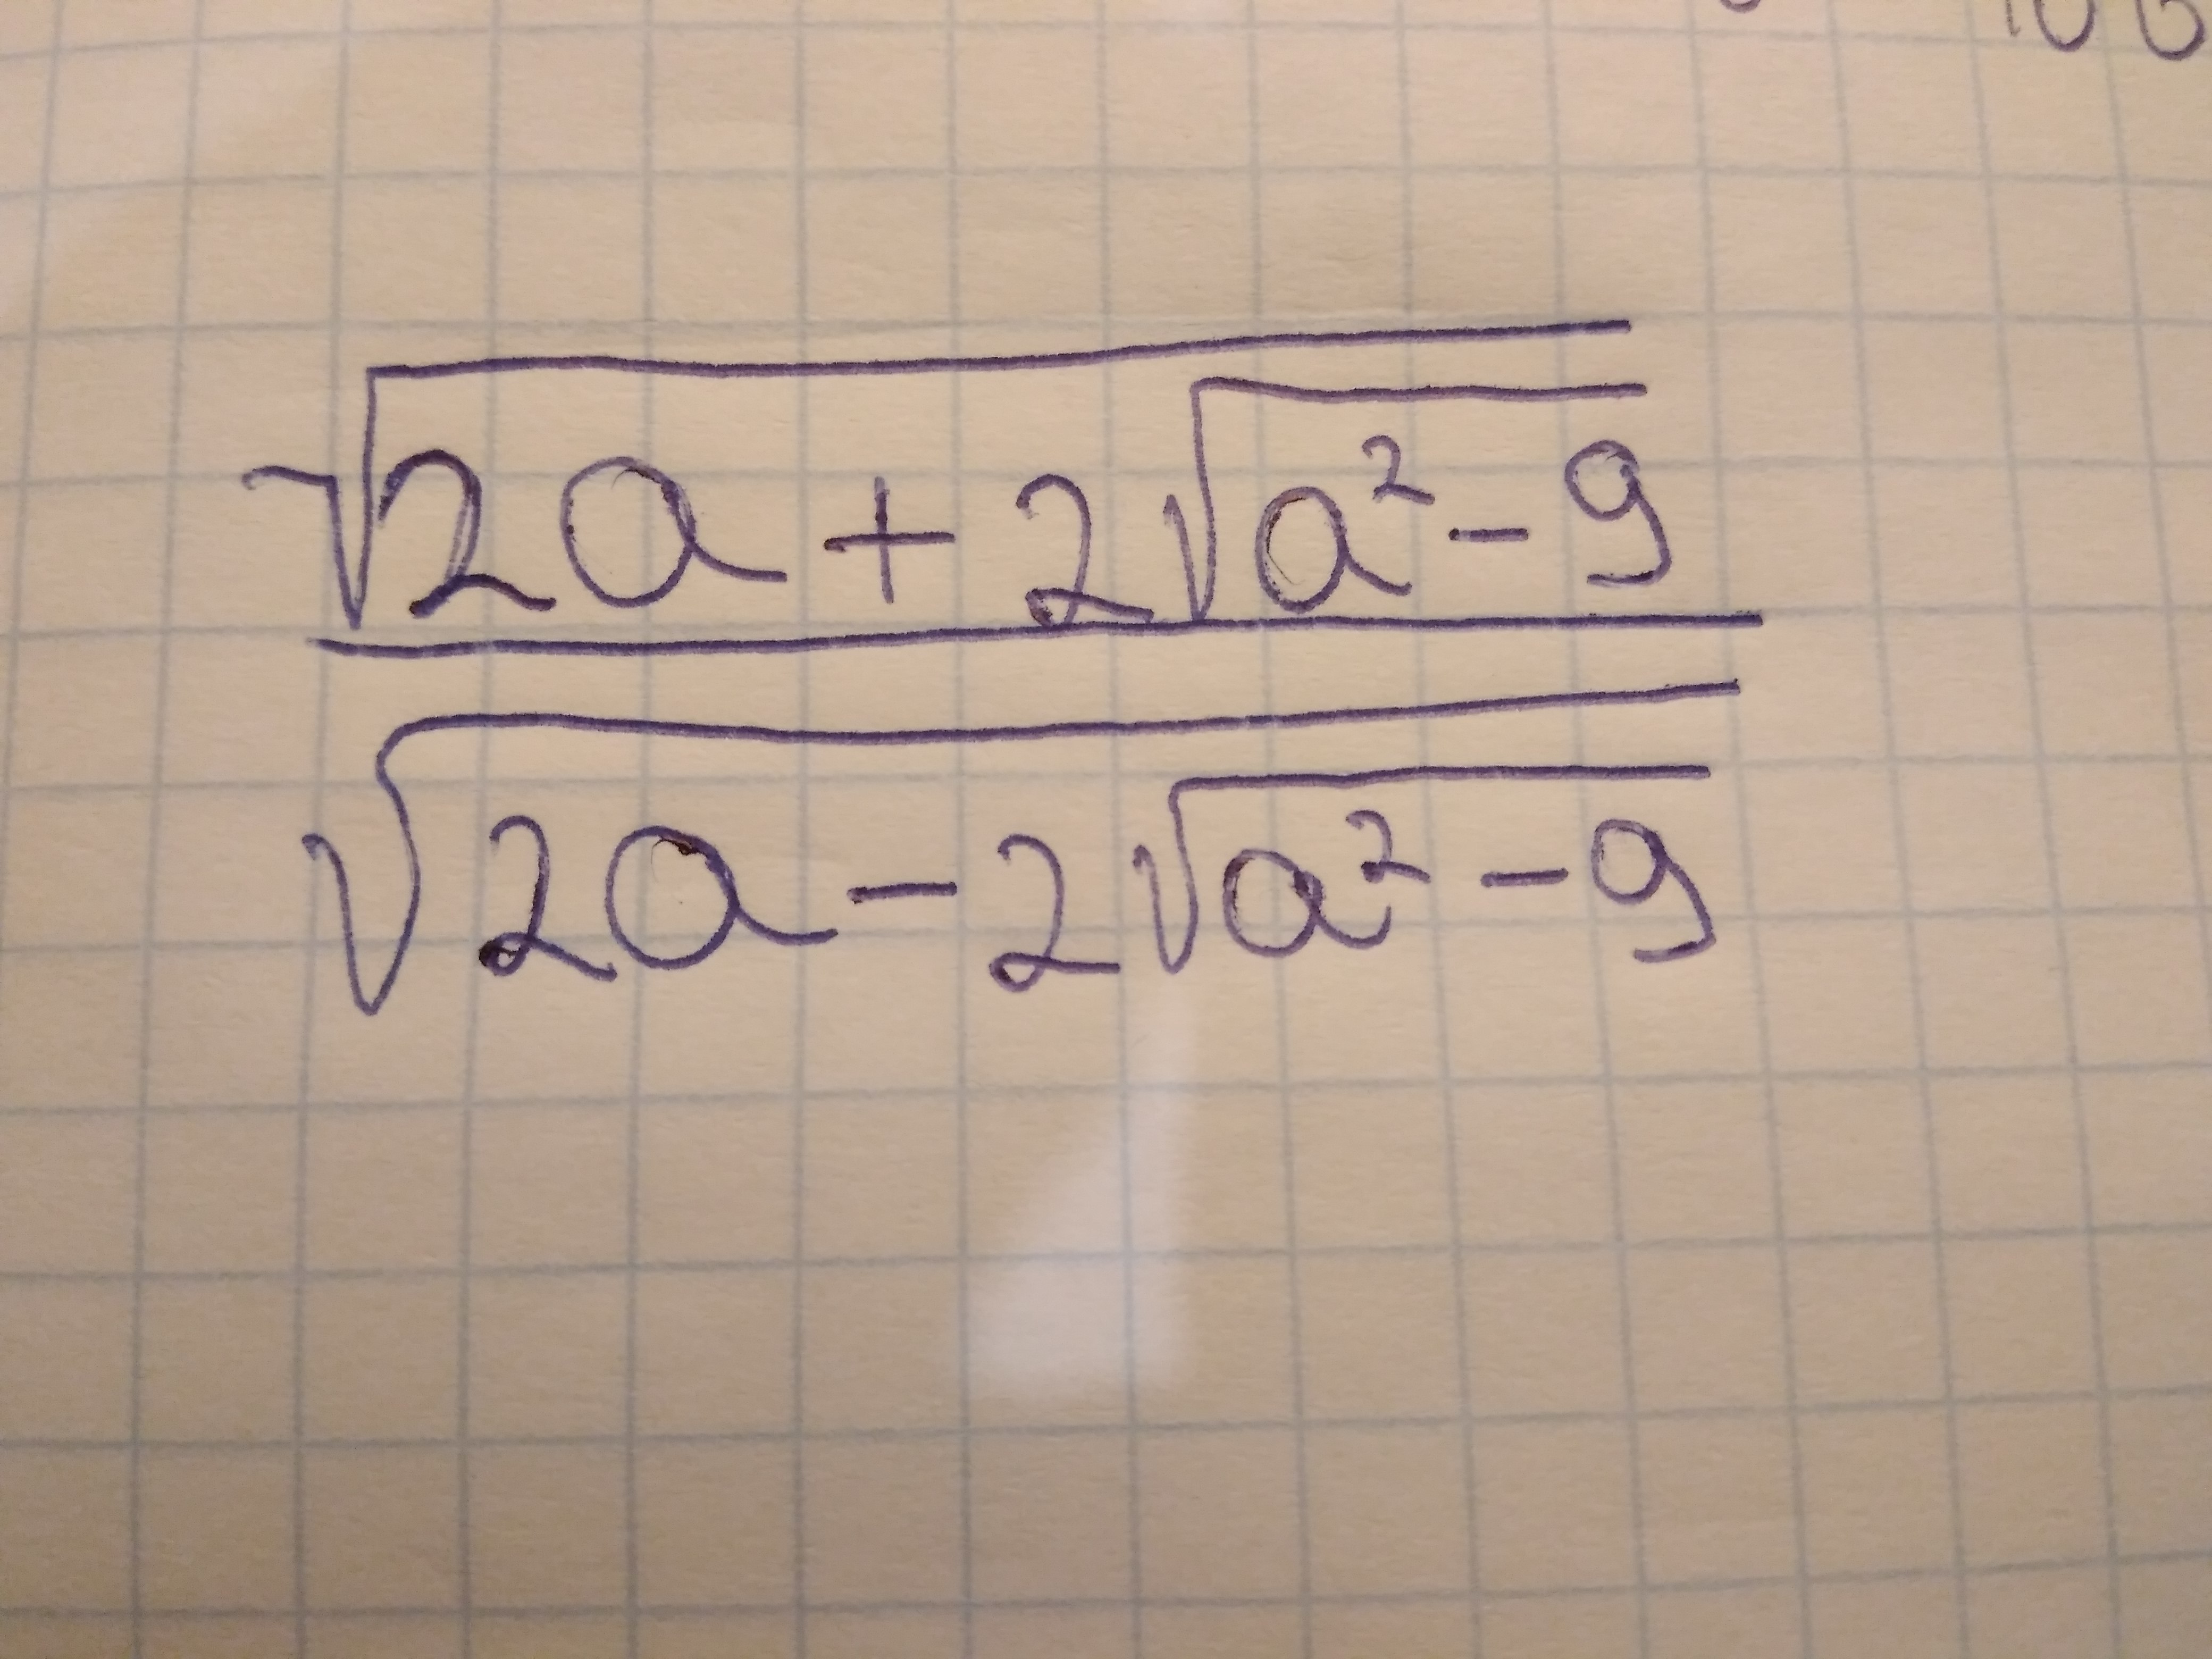 √(2a + 2√(a² - 9))
√(2a - 2√(a² - 9))